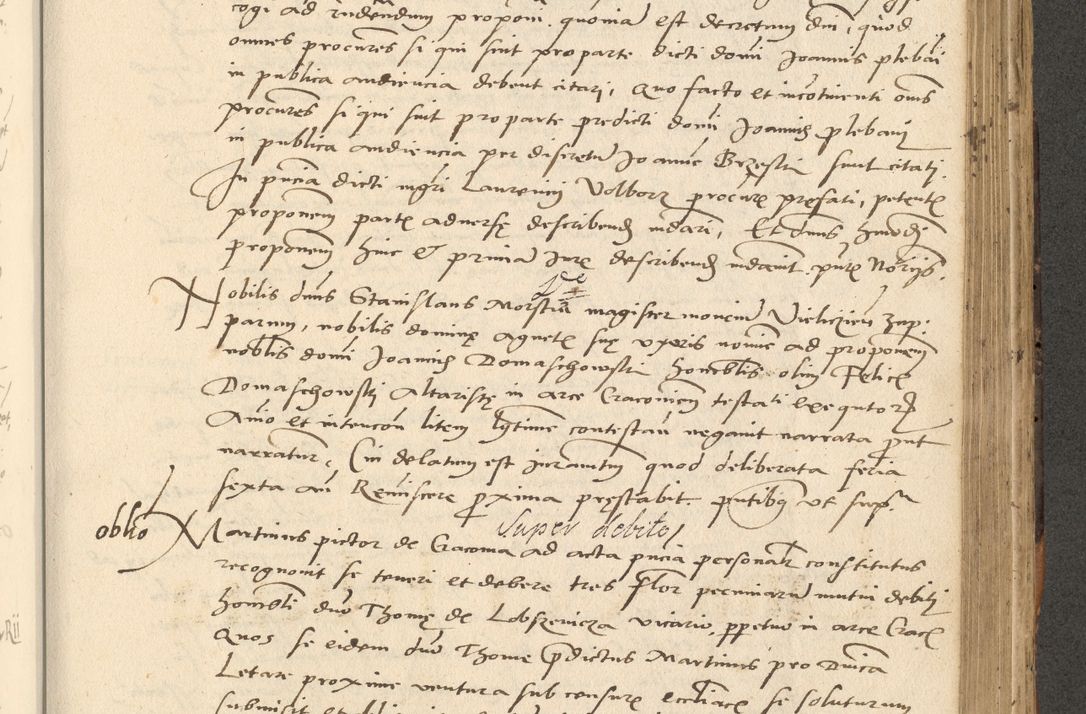 cogi ad rndendum proponi. quonia est decretum dni, quod
omnes procures si qui sint pro parte dicti domi Joannis plebai
in publica audiencia debent citari, Quo facto et incontinenti oms
procures si qui sint pro parte predicti domi Joannis plebani
in publica audiencia per discretu Joanne Brzeski sunt citati.
In pncia dicti mgri Laurencij Volborz procure prefati, petente
proponem parte adverse describend mdari, Et dnus
proponem hinc & prima Jure describend mdavit. pnte Norijs.
Nobilis dnus Stanislaus Morstin magister moncium Vieliczien Zup:
parum, nobilis domine Agnete sue uxoris nomie ad proponem
noblis domi Joannis Domaschowski honoblis olim Felicis
Domaschowski Altariste in arce Cracoviem testati exequtoris
Animo et intencou litem lgtime contestan negavit narrata prout
narratur, Cui delatum est iuramtum quod deliberata feria
sexta an Reminscere proxima prestabit. pntibus ut supra
super debito
oblio Martinus pictor de Cracovia ad acta pncia personalr constitutus
recognovit se teneri et debere tres flor pecuniaru mutui debiti
honobli dno Thome de Lobzenicza vicario, perpetuo in arce Crace
Quos se eidem dno Thome predictus Martinus pro Dnica
Letare proxime ventura sub censure eccliace se soluturum
submisit et